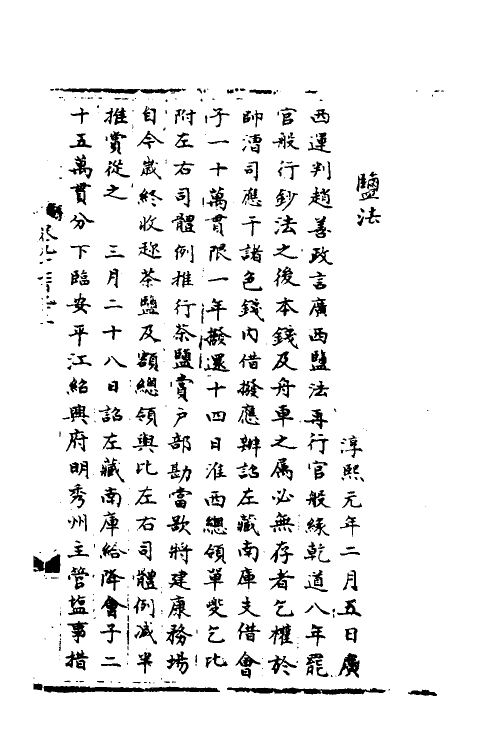 鹽法
淳熙元年二月五日廣
西運判趙善政言廣西鹽法再行官般緣乾道八年罷
官般行鈔法之後本錢及舟車之属必無存者乞權於
帥漕司應干諸色錢內借撥應辦詔左藏南庫支借會
子一十萬貫限一年撥還十四日淮西總領單夔乞比
附左右司體例推行茶鹽賞戶部勘當欲將建康務場
自今歲終收趂茶鹽及額總領與比左右司體例減半
推賞從之　三月二十八日詔左藏南庫給降會子二
十五萬貫分下臨安平江紹興府明秀州主管塩事措